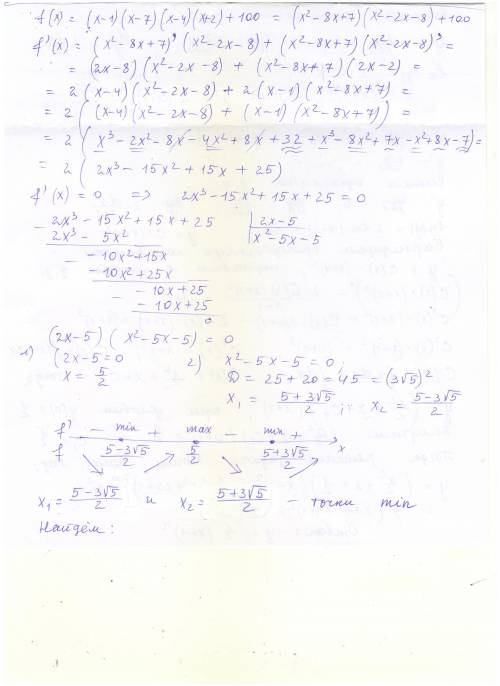 f(x) = (x-1)(x-7)(x-4)(x+2)+100 = (x²-8x+7)(x²-2x-8)+100
f'(x) = (x²-8x+7)'(x²-2x-8) + (x²-8x+7)(x²-2x-8)' =
= (2x-8)(x²-2x-8) + (x²-8x+7)(2x-2) =
= 2(x-4)(x²-2x-8) + 2(x-1)(x²-8x+7) =
= 2((x-4)(x²-2x-8) + (x-1)(x²-8x+7)) =
= 2(x³-2x²-8x-4x²+8x+32+x³-8x²+7x-x²+8x-7) =
= 2(2x³-15x²+15x+25)
f'(x) = 0 => 2x³-15x²+15x+25 = 0
- 2x³-15x²+15x+25 | 2x-5
2x³-5x² | x²-5x-5
- -10x²+15x
-10x²+25x
- -10x+25
-10x+25
0
(2x-5)(x²-5x-5) = 0
1) (2x-5=0 2) x²-5x-5=0;
x = 5/2 D = 25+20 = 45 = (3√5)²
x₁ = (5+3√5)/2; x₂ = (5-3√5)/2
f' - min + max - min +
f (5-3√5)/2 5/2 (5+3√5)/2 x
x₁ = (5-3√5)/2 и x₂ = (5+3√5)/2 - точки min
Найдём: